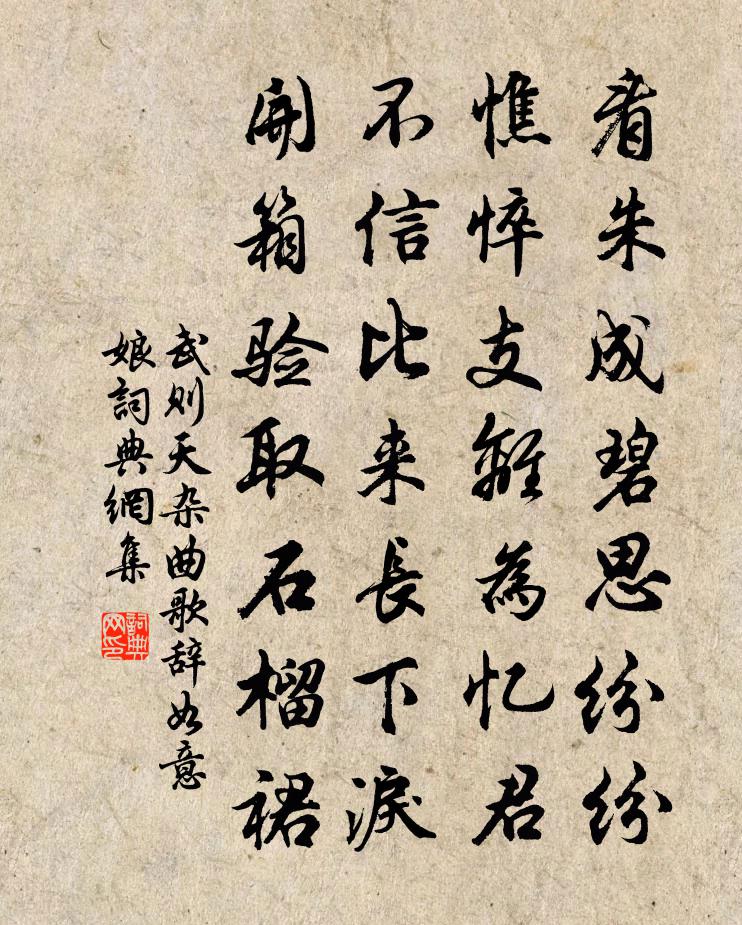 看朱成碧思纷纷
憔悴支離為忆君
不信比来長下淚
開箱验取石榴裙
武则天杂曲歌辞如意
娘詞典網集
詞典
网印